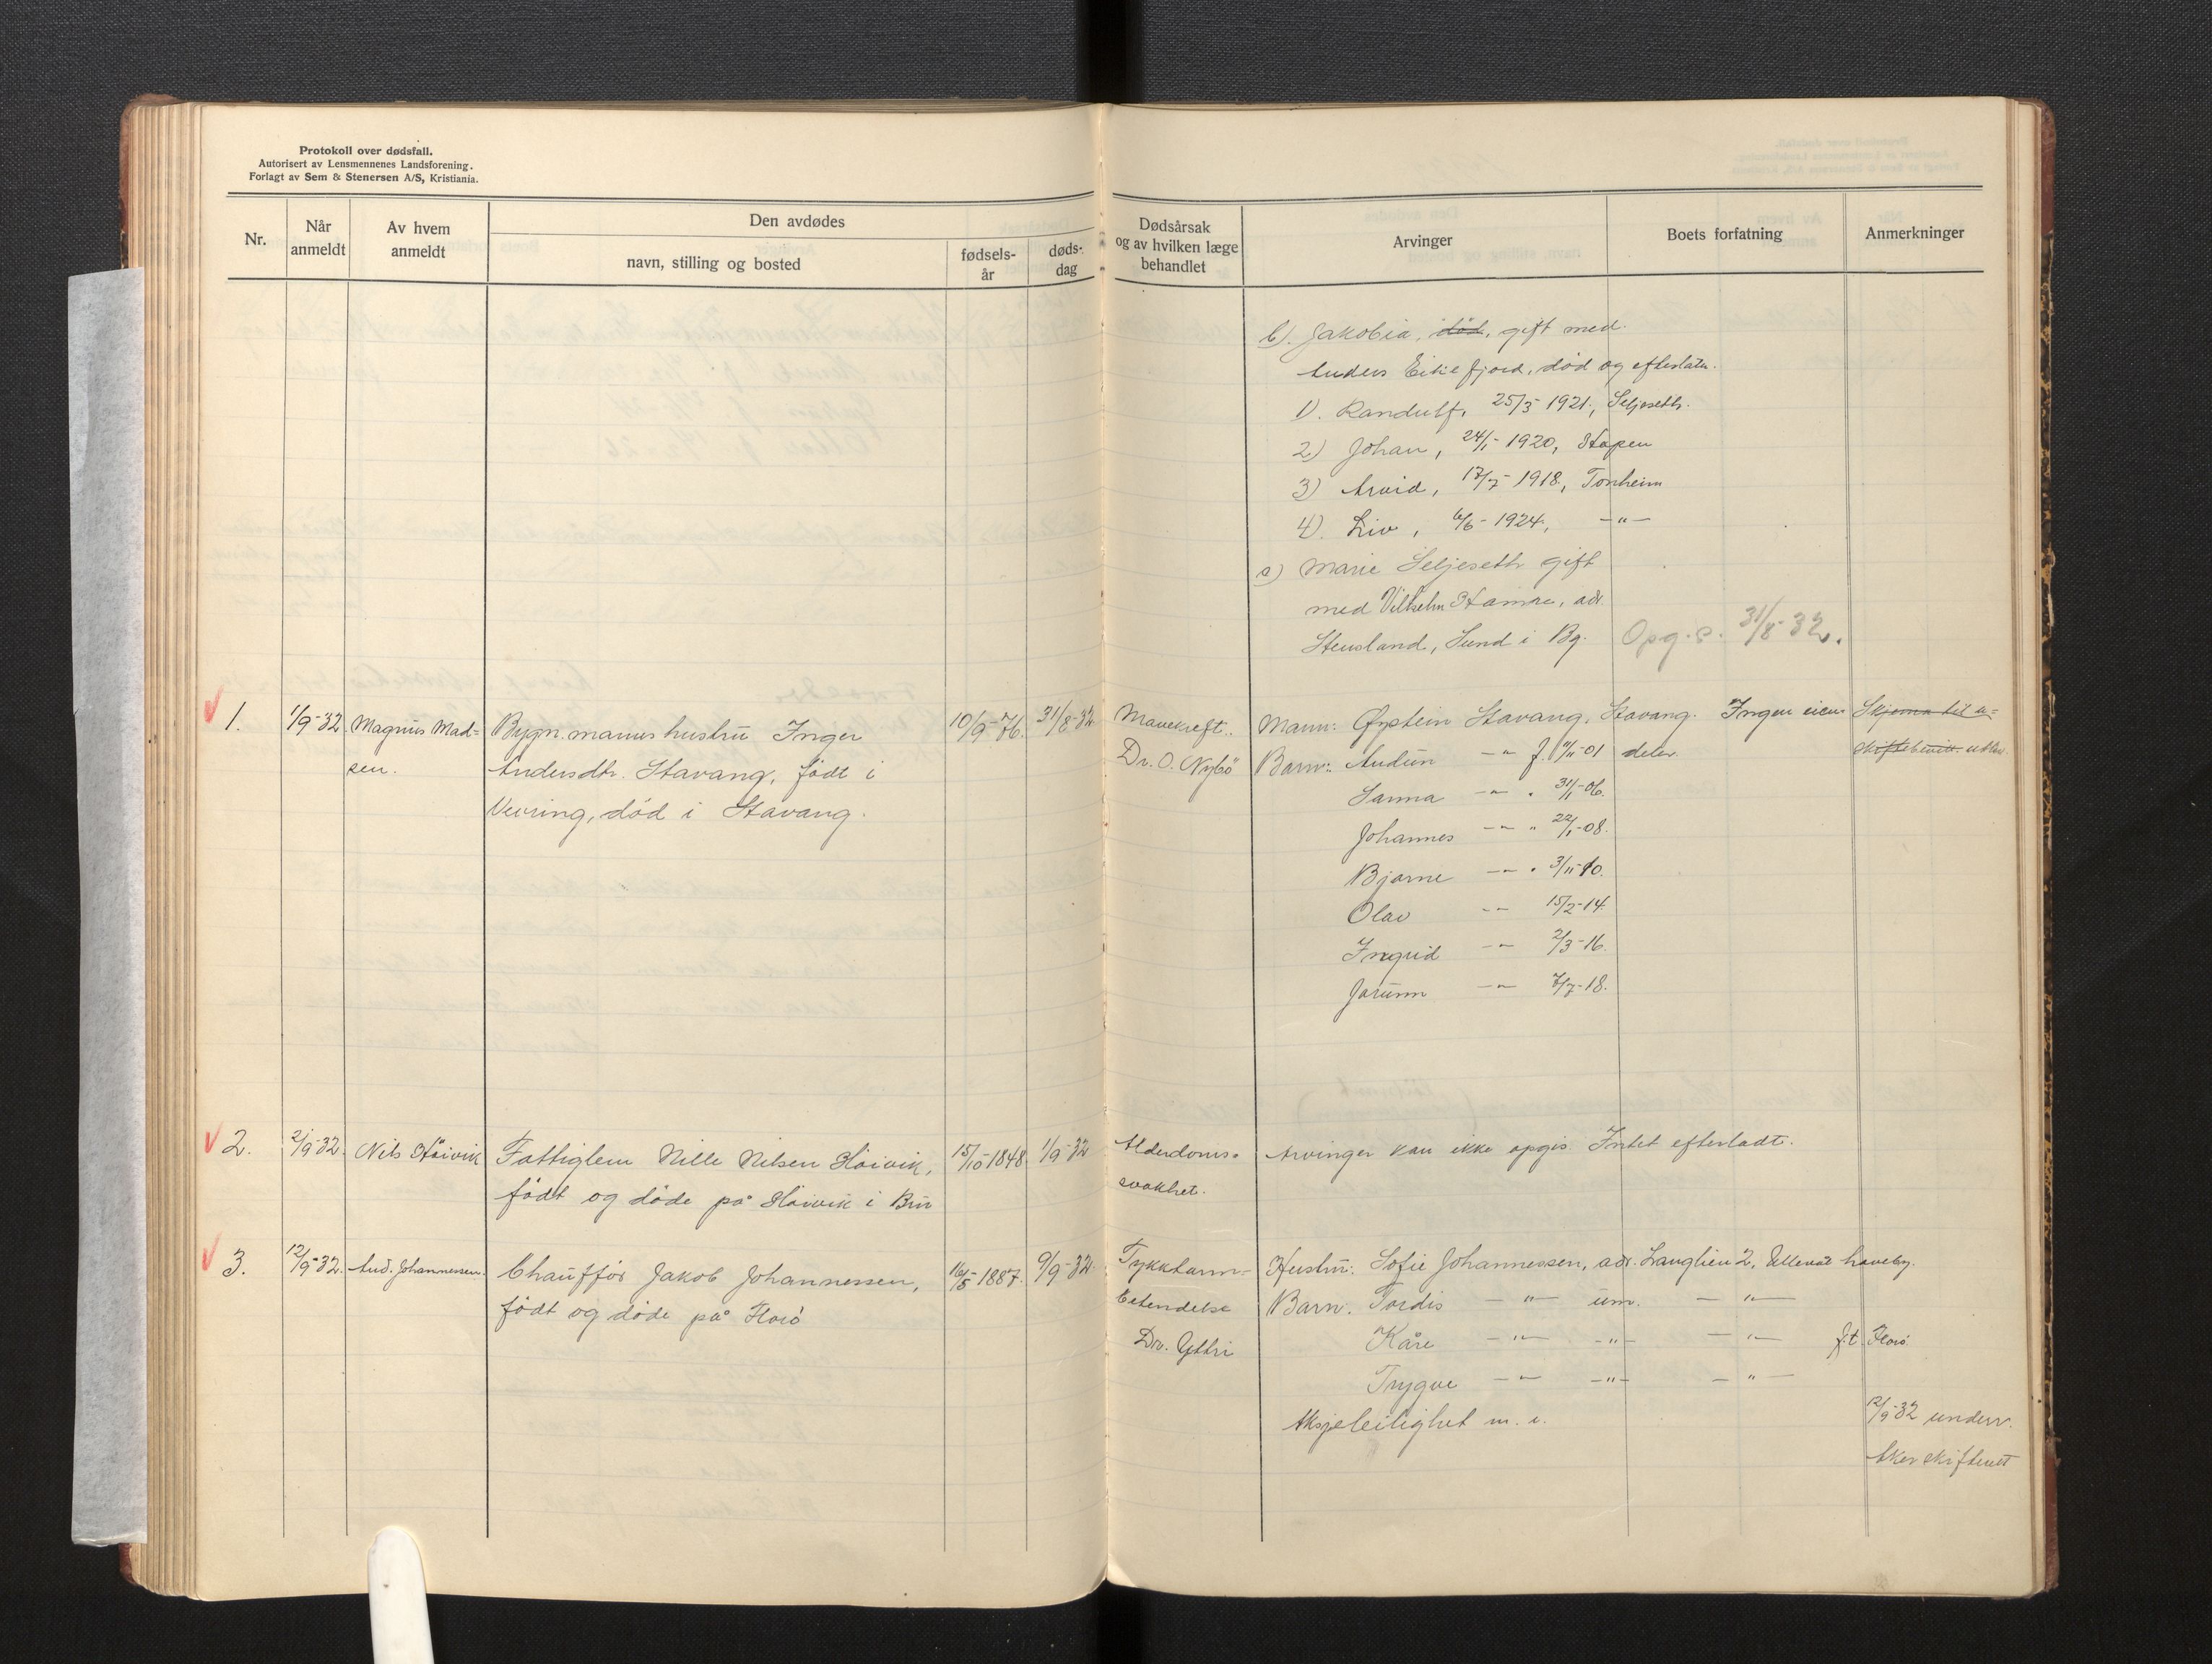 Protokoll over dødsfall.
Autorisert av Lensmennenes Landsforening.
Forlagt av Sem & Stenersen A/S, Kristiania.
Nr.
Når anmeldt
Av hvem anmeldt
Den avdødes
navn, stilling og bosted
fødsels-
år
døds-
dag
Dødsårsak
og av hvilken læge
behandlet
Arvinger
Boets forfatning
Anmerkninger
b). Jakobia, død, gift med
Anders Eikefjord, død og efterlatn.
1). Randulf, 25/3-1921, Seljeseth.
2) Johan, 24/1-1920, Stapen
3) Arvid, 17/7-1918, Tonheim
4). Liv, 6/6-1924, —"—
Marie Seljeseth gift
med Vilhelm, adr.
Stensland, Sund i Bg. Opg. s. 31/8-32.
1. 1/9-32 Magnus Mad-
sen.
Bygn.manns hustru Inger
Andersdtr. Stavang, født i
Vevring, død i Stavang.
10/9-76. 31/8-32
Mavekreft.
Dr. O. Nybö
Mann: Øystein Stavang, Stavang. Ingen eien-
Barn: Audun —"— f. 11-01 deler
Sanna —"— " 31/1-06.
Johannes —"— " 22/1-08.
Bjarne —"— " 3/11-10.
Olav —"— 15/2-14.
Ingrid —"— 2/3-16.
Jorunn —"— 7/7-18.
Skjema til u-
skiftebevill. utlev.
2. 2/9-32. Nils Høivik
Fattiglem Nille Nilsen Høivik,
født og døde på Høivik i Bru
15/10-1848. 1/9-32
Alderdoms-
svakhet.
Arvinger kan ikke opgis. Intet efterladt.
3. 12/9-32. And. Johannessen.
Chauffør Jakob Johannessen,
født og døde på Florø
16/5-1887. 9/9-32.
Tykktarm-
Dr. Yttri
Hustru: Sofie Johannessen, adr. Langlien 2, Ullevål haveby.
Barn. Tordis —"— um. —"—
Kåre —"— —"— —"— f.t. Florø.
Trygve —"— —"— —"—
Aksjeleilighet m. v.
12/9-32 underr.
Aker skifterett